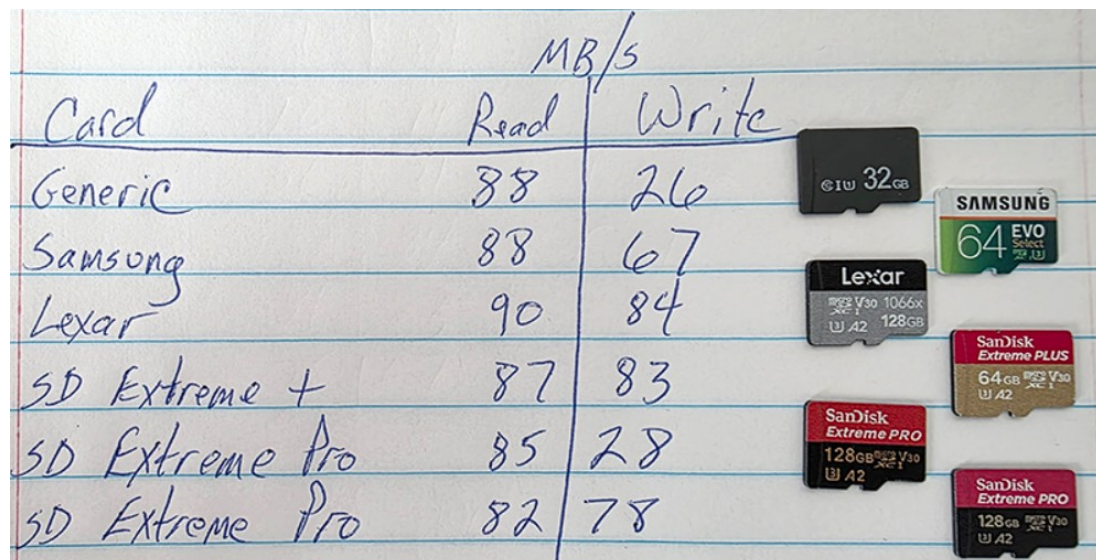 MB/S
Card Read Write
Generic 88 26
Samsung 88 67
Lexar 90 84
SD Extreme + 87 83
SD Extreme Pro 85 28
SD Extreme Pro 82 78
32GB
SAMSUNG
64 EVO
Select
Lexar
V30 1066x
XC I
U3 A2 128GB
SanDisk
Extreme PLUS
64GB V30
XC I
U3 A2
SanDisk
Extreme PRO
128GB V30
XC I
U3 A2
SanDisk
Extreme PRO
128GB V30
XC I
U3 A2